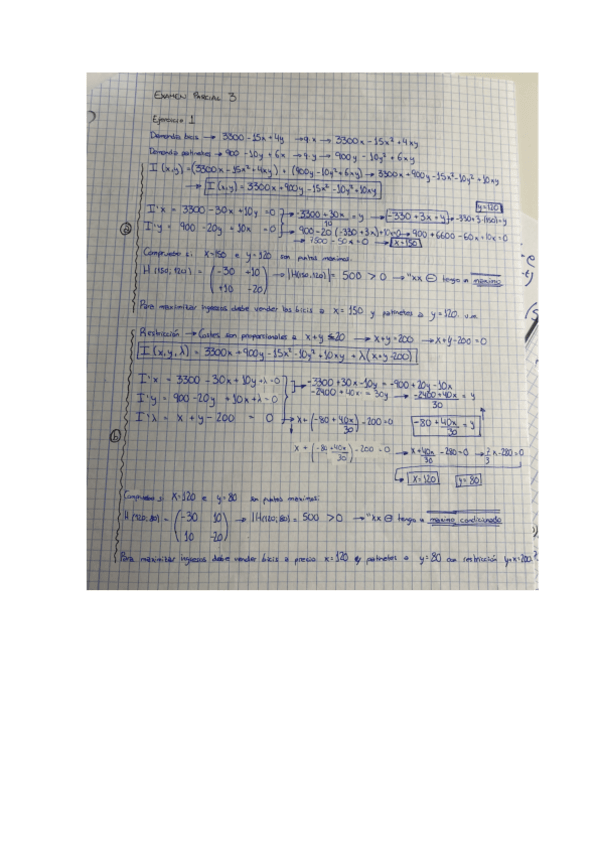 EXAMEN PARCIAL 3
Ejercicio 1
Demanda bicis → 3300 - 15x + 4y → q·x → 3300x - 15x² + 4xy
Demanda patinetes → 900 - 10y + 6x → q·y → 900y - 10y² + 6xy
I(x,y) = (3300x - 15x² + 4xy) + (900y - 10y² + 6xy) → 3300x + 900y - 15x² - 10y² + 10xy
→ I(x,y) = 3300x + 900y - 15x² - 10y² + 10xy
y = 120
a
I'x = 3300 - 30x + 10y = 0 → -3300 + 30x / 10 = y → -330 + 3x = y → -330 + 3·(150) = y
I'y = 900 - 20y + 10x = 0 → 900 - 20(-330 + 3x) + 10x = 0 → 900 + 6600 - 60x + 10x = 0
→ 7500 - 50x = 0 → x = 150
Compruebo si x = 150 e y = 120 son puntos máximos.
H(150, 120) = (-30 +10 / +10 -20) → |H(150,120)| = 500 > 0 → "xx ⊖ tengo un máximo
Para maximizar ingresos debe vender las bicis a x = 150 y patinetes a y = 120 u.m.
b
Restricción → x + y = 200 → x + y - 200 = 0
I(x, y, λ) = 3300x + 900y - 15x² - 10y² + 10xy + λ(x + y - 200)
I'x = 3300 - 30x + 10y + λ = 0 → -3300 + 30x - 10y = -900 + 20y - 10x
I'y = 900 - 20y + 10x + λ = 0 -2400 + 40x = 30y → -2400 + 40x / 30 = y
I'λ = x + y - 200 = 0 → x + (-80 + 40x / 30) - 200 = 0 -80 + 40x / 30 = y
x + (-80 + 40x / 30) - 200 = 0 → x + 40x / 30 - 280 = 0 → 7/3 x - 280 = 0
x = 120 y = 80
Compruebo si x = 120 e y = 80 son puntos máximos.
H(120, 80) = (-30 10 / 10 -20) → |H(120, 80)| = 500 > 0 → "xx ⊖ tengo un máximo condicionado
Para maximizar ingresos debe vender bicis a precio x = 120 y patinetes a y = 80 con restricción y + x = 200